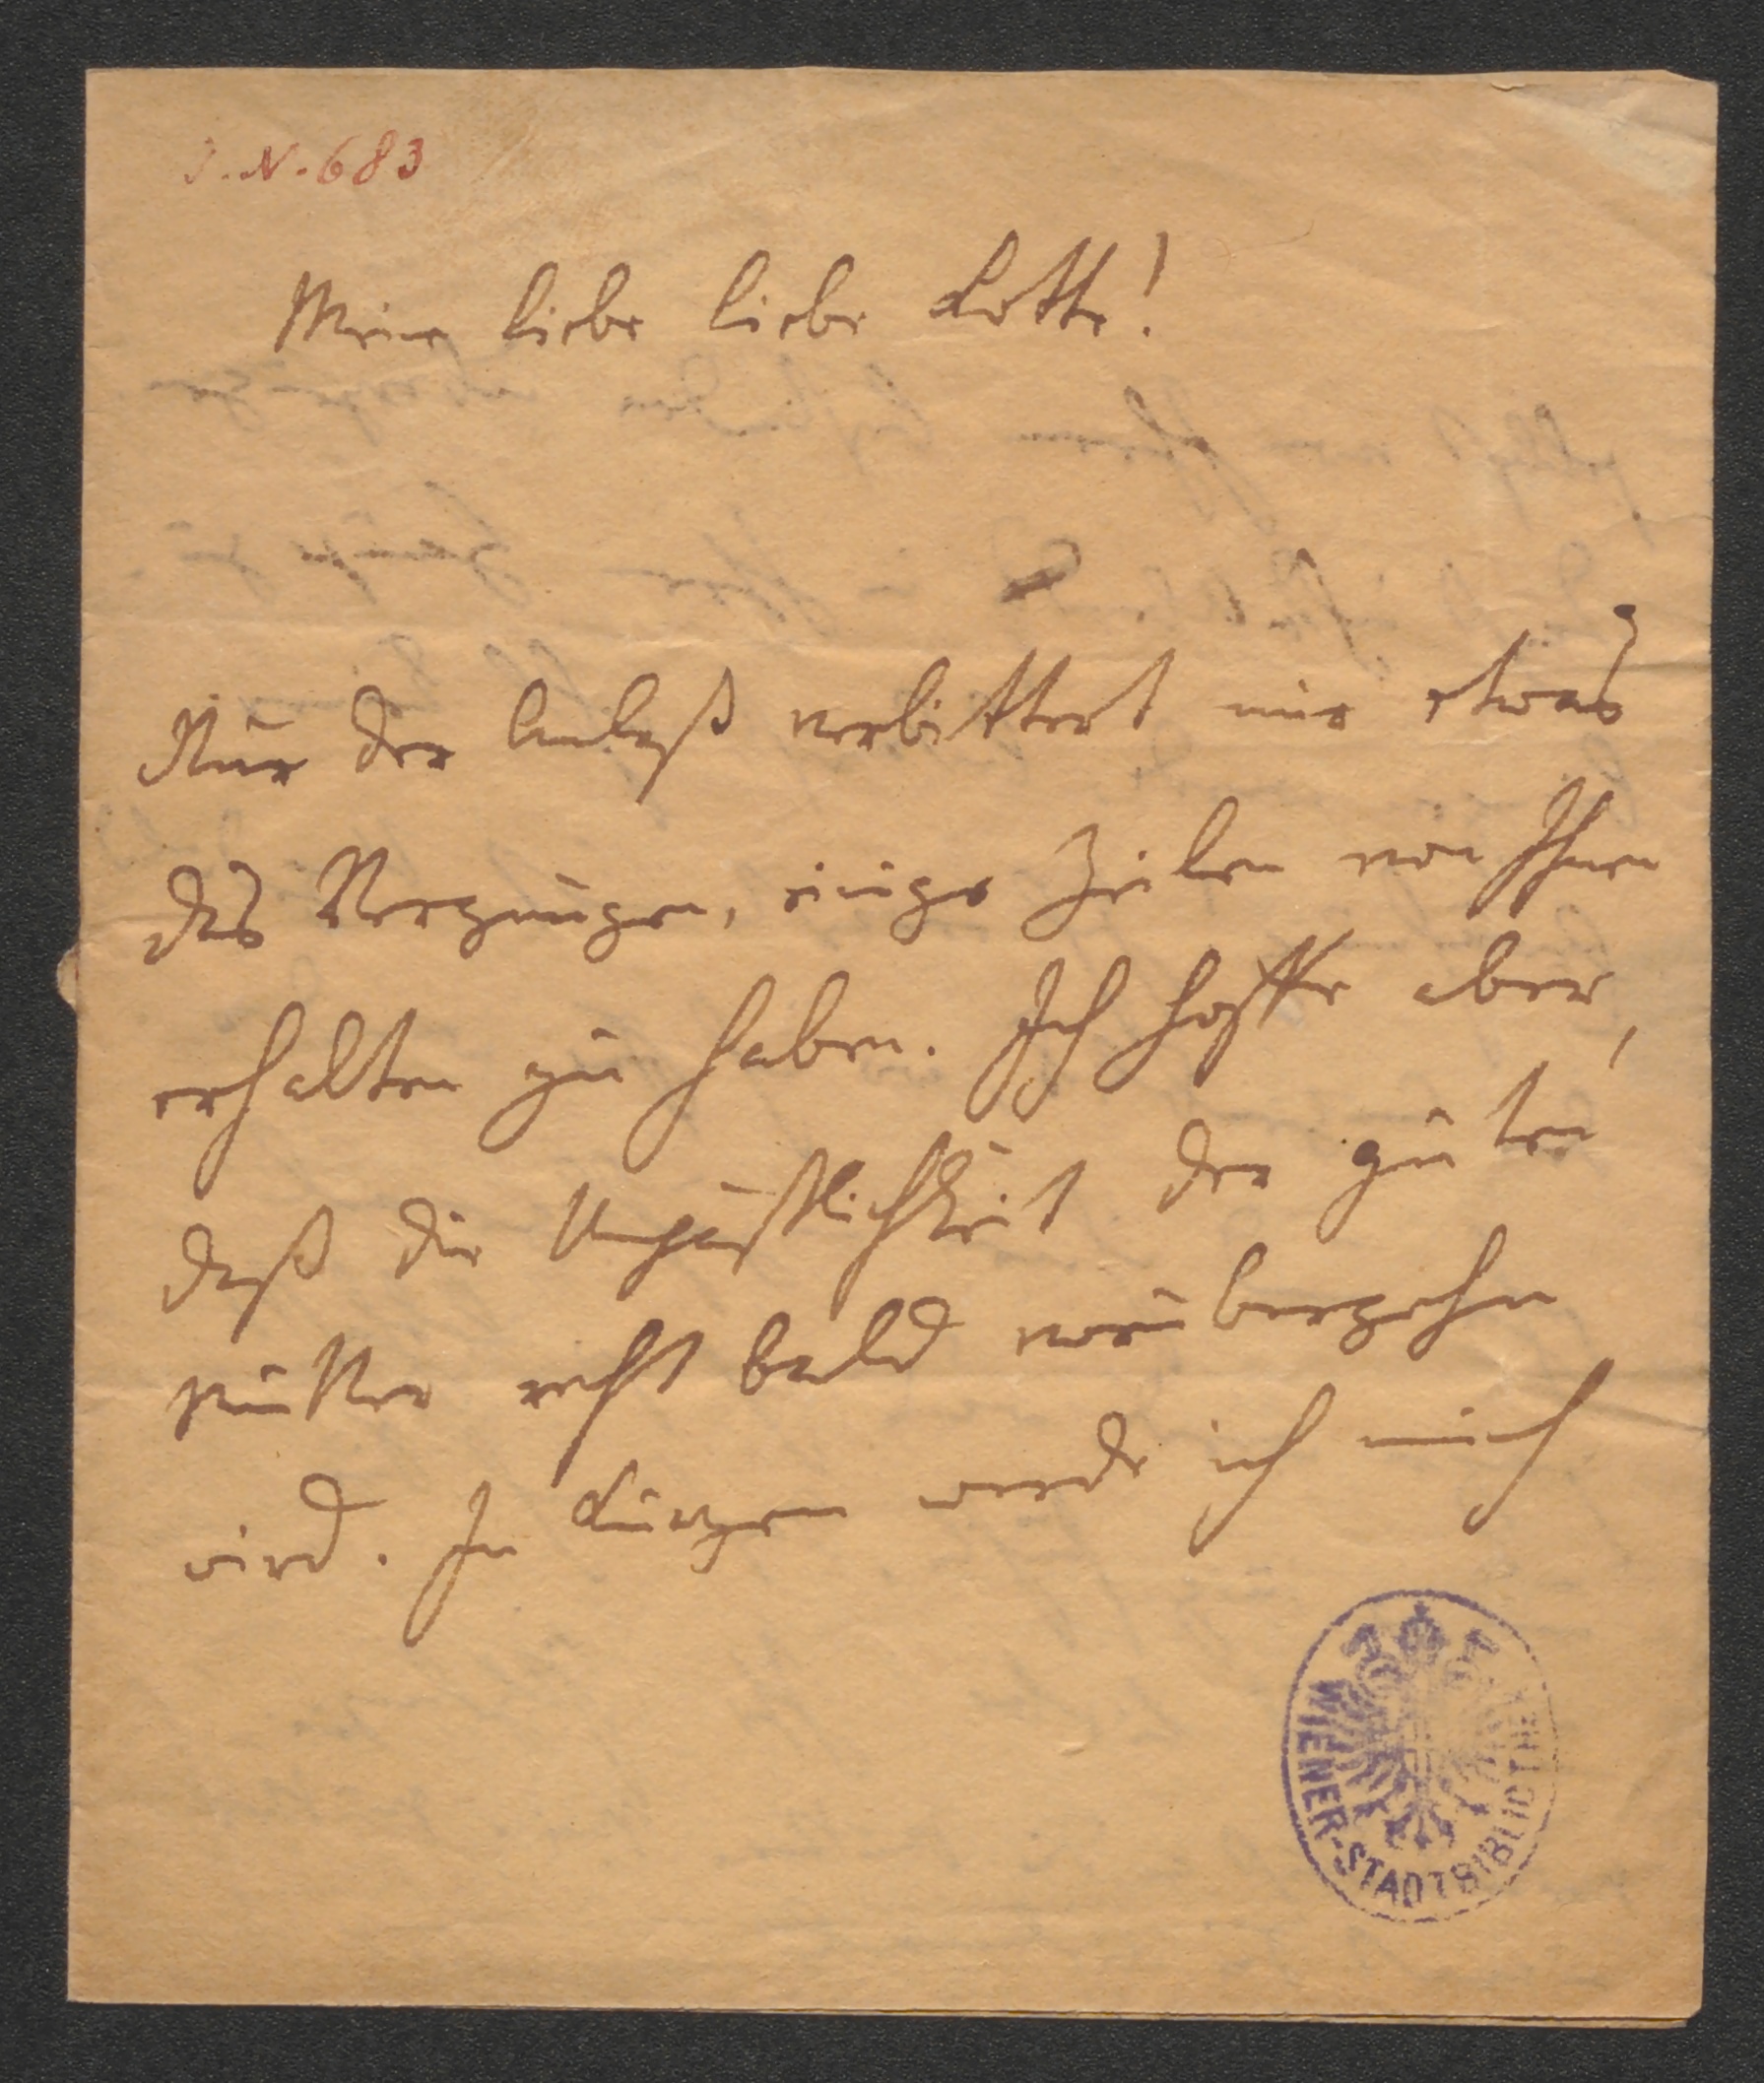 J. N. 683
Meine liebe liebe Lotte!
Nur der Anlaß verbittert mir etwas
das Vergnügen, einige Zeilen von Ihnen
erhalten zu haben. Ich hoffe aber,
daß die Unpäßlichkeit der guten
Mutter recht bald vorübergehn
wird. In Kurzem werde ich mich
WIENER-STADTBIBLIOTHEK